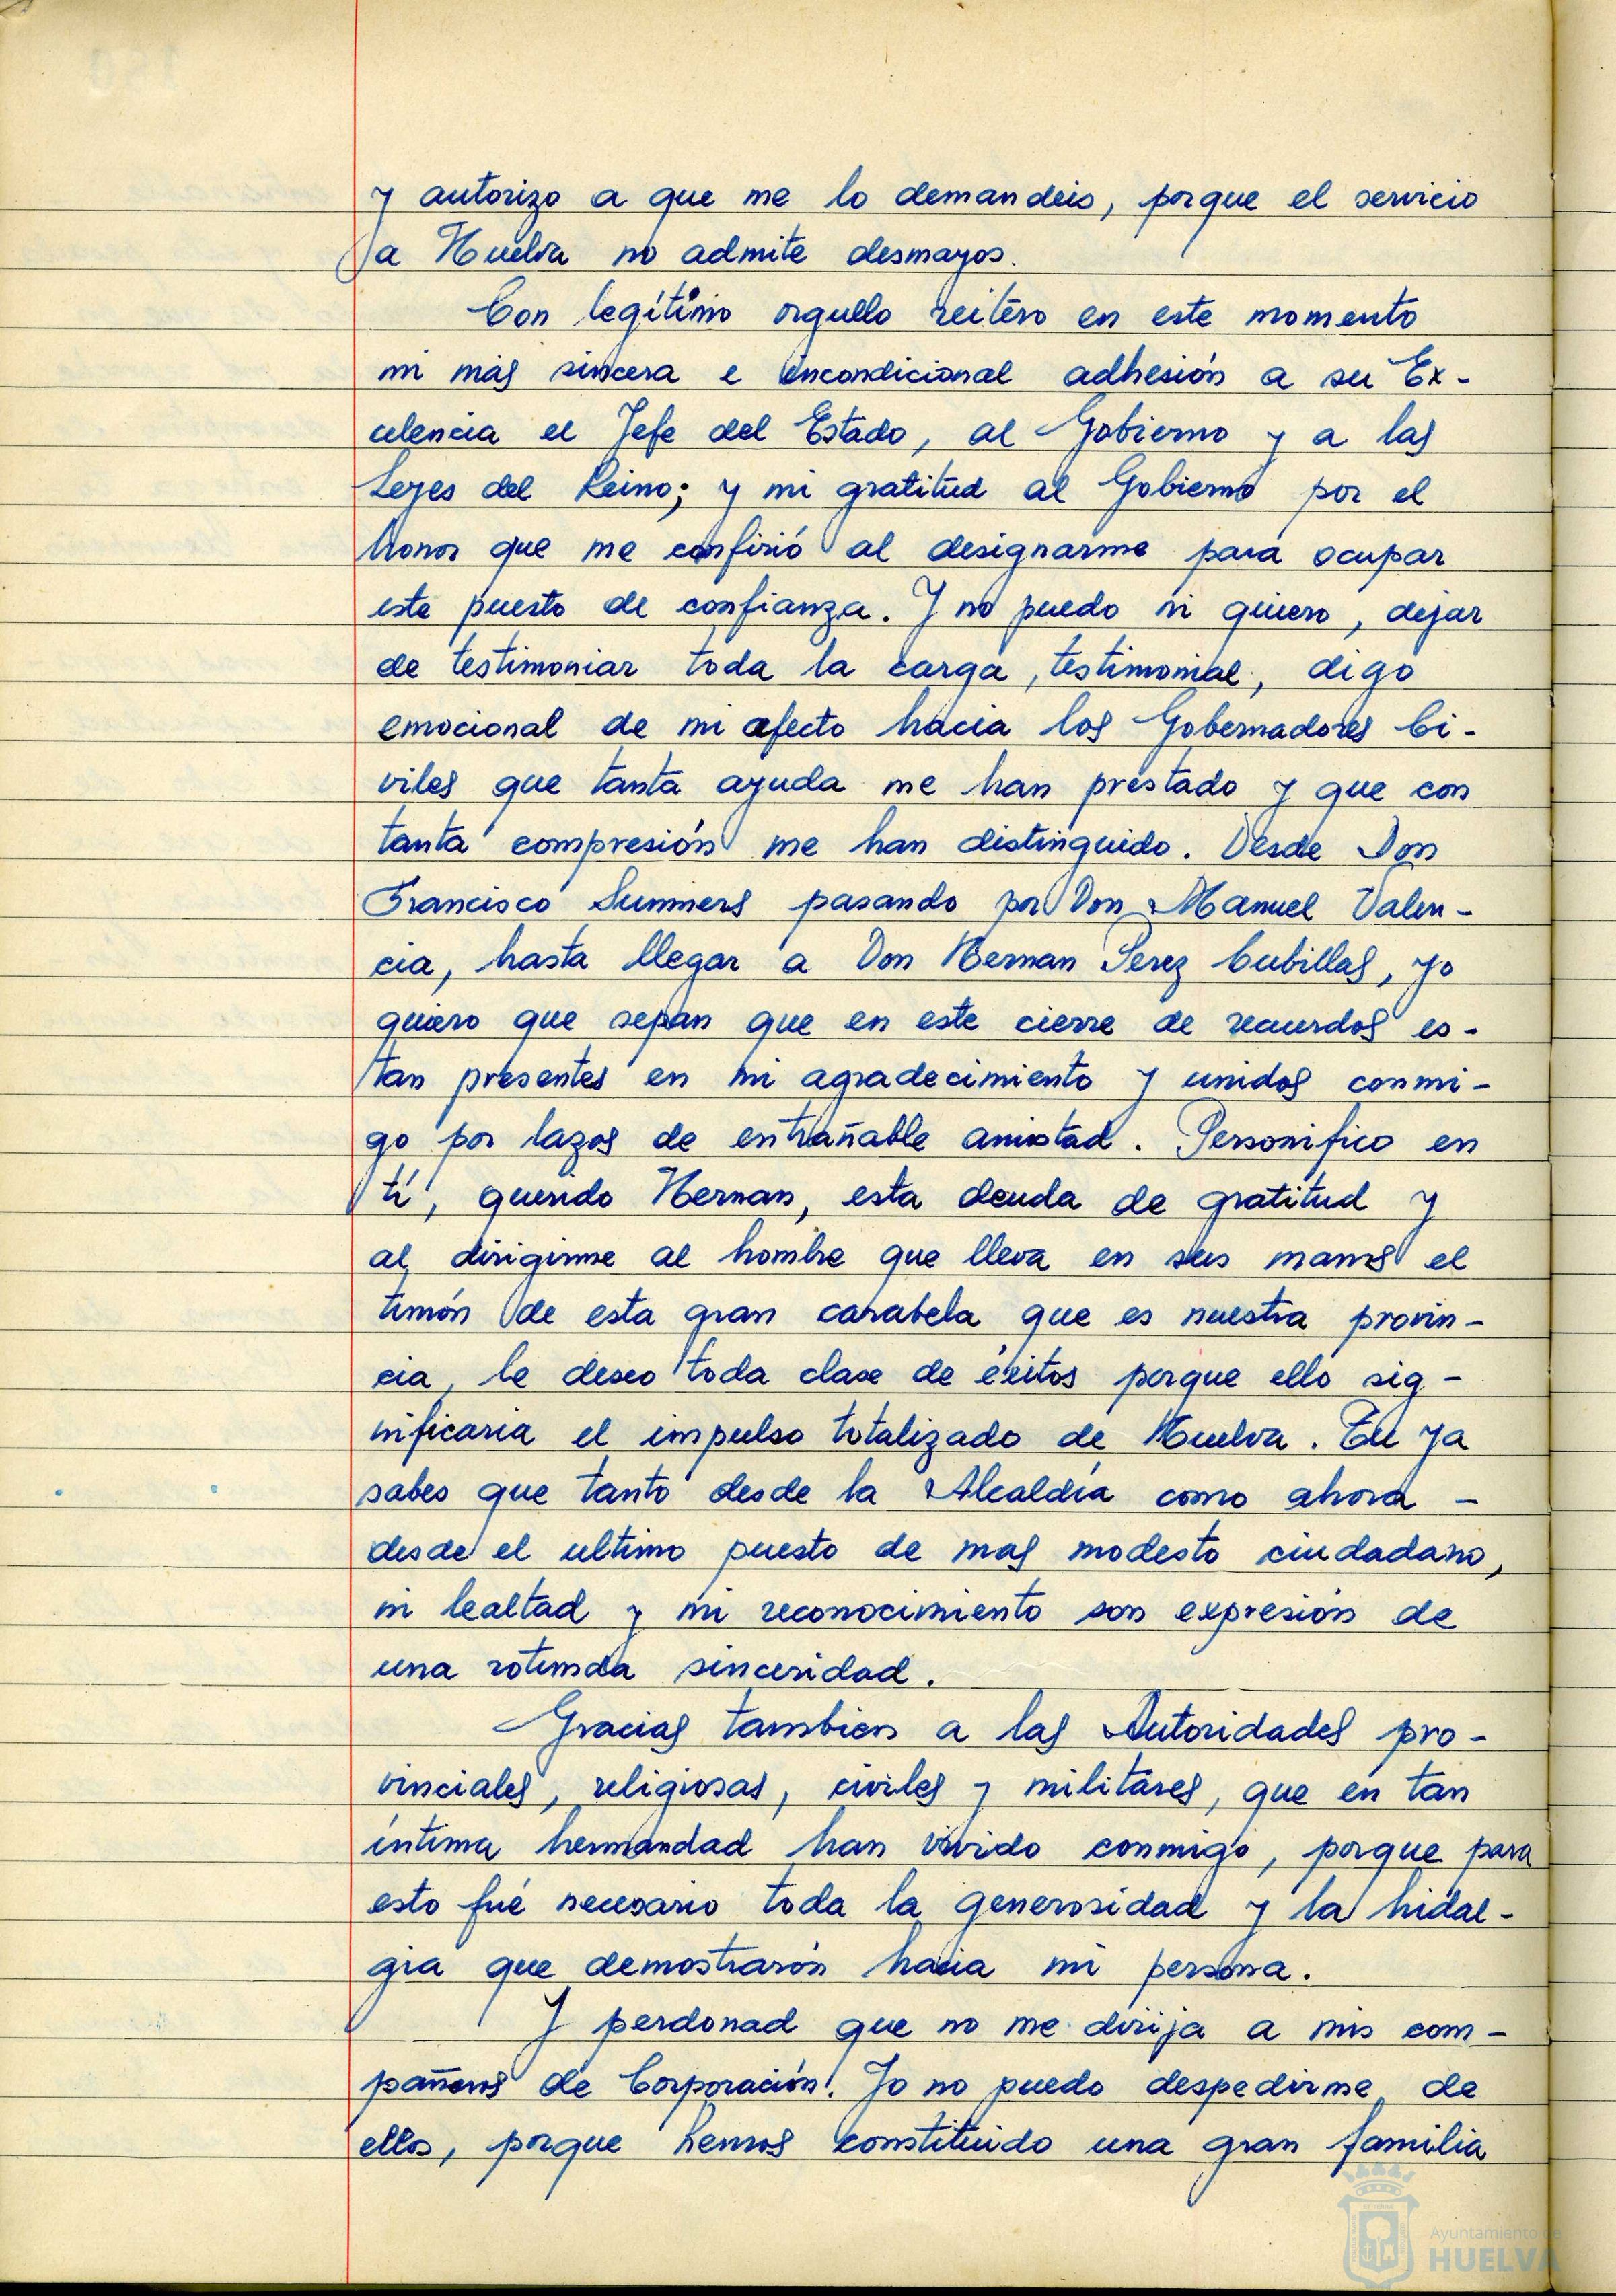 y autorizo a que me lo demandeis, porque el servicio
a Huelva no admite desmayos.
Con legítimo orgullo reitero en este momento
mi mas sincera e incondicional adhesión a su Ex-
celencia el Jefe del Estado, al Gobierno y a las
Leyes del Reino; y mi gratitud al Gobierno por el
honor que me confirió al designarme para ocupar
este puesto de confianza. Y no puedo ni quiero, dejar
de testimoniar toda la carga, testimonial, digo
emocional de mi afecto hacia los Gobernadores Ci-
viles que tanta ayuda me han prestado y que con
tanta compresión me han distinguido. Desde Don
Francisco Summers pasando por Don Manuel Valen-
cia, hasta llegar a Don Hernan Perez Cubillas, yo
quiero que sepan que en este cierre de recuerdos es-
tan presentes en mi agradecimiento y unidos conmi-
go por lazos de entrañable amistad. Personifico en
tí, querido Hernan, esta deuda de gratitud y
al dirigirme al hombre que lleva en sus manos el
timón de esta gran carabela que es nuestra provin-
cia, le deseo toda clase de éxitos porque ello sig-
nificaria el impulso totalizado de Huelva. Tu ya
sabes que tanto desde la Alcaldía como ahora -
desde el ultimo puesto de mas modesto ciudadano,
mi lealtad y mi reconocimiento son expresión de
una rotunda sinceridad.
Gracias tambien a las Autoridades pro-
vinciales, religiosas, civiles y militares, que en tan
íntima hermandad han vivido conmigo, porque para
esto fué necesario toda la generosidad y la hidal-
gia que demostrarón hacia mi persona.
Y perdonad que no me dirija a mis com-
pañeros de Corporación. Yo no puedo despedirme de
ellos, porque hemos constituido una gran familia
Ayuntamiento de
HUELVA